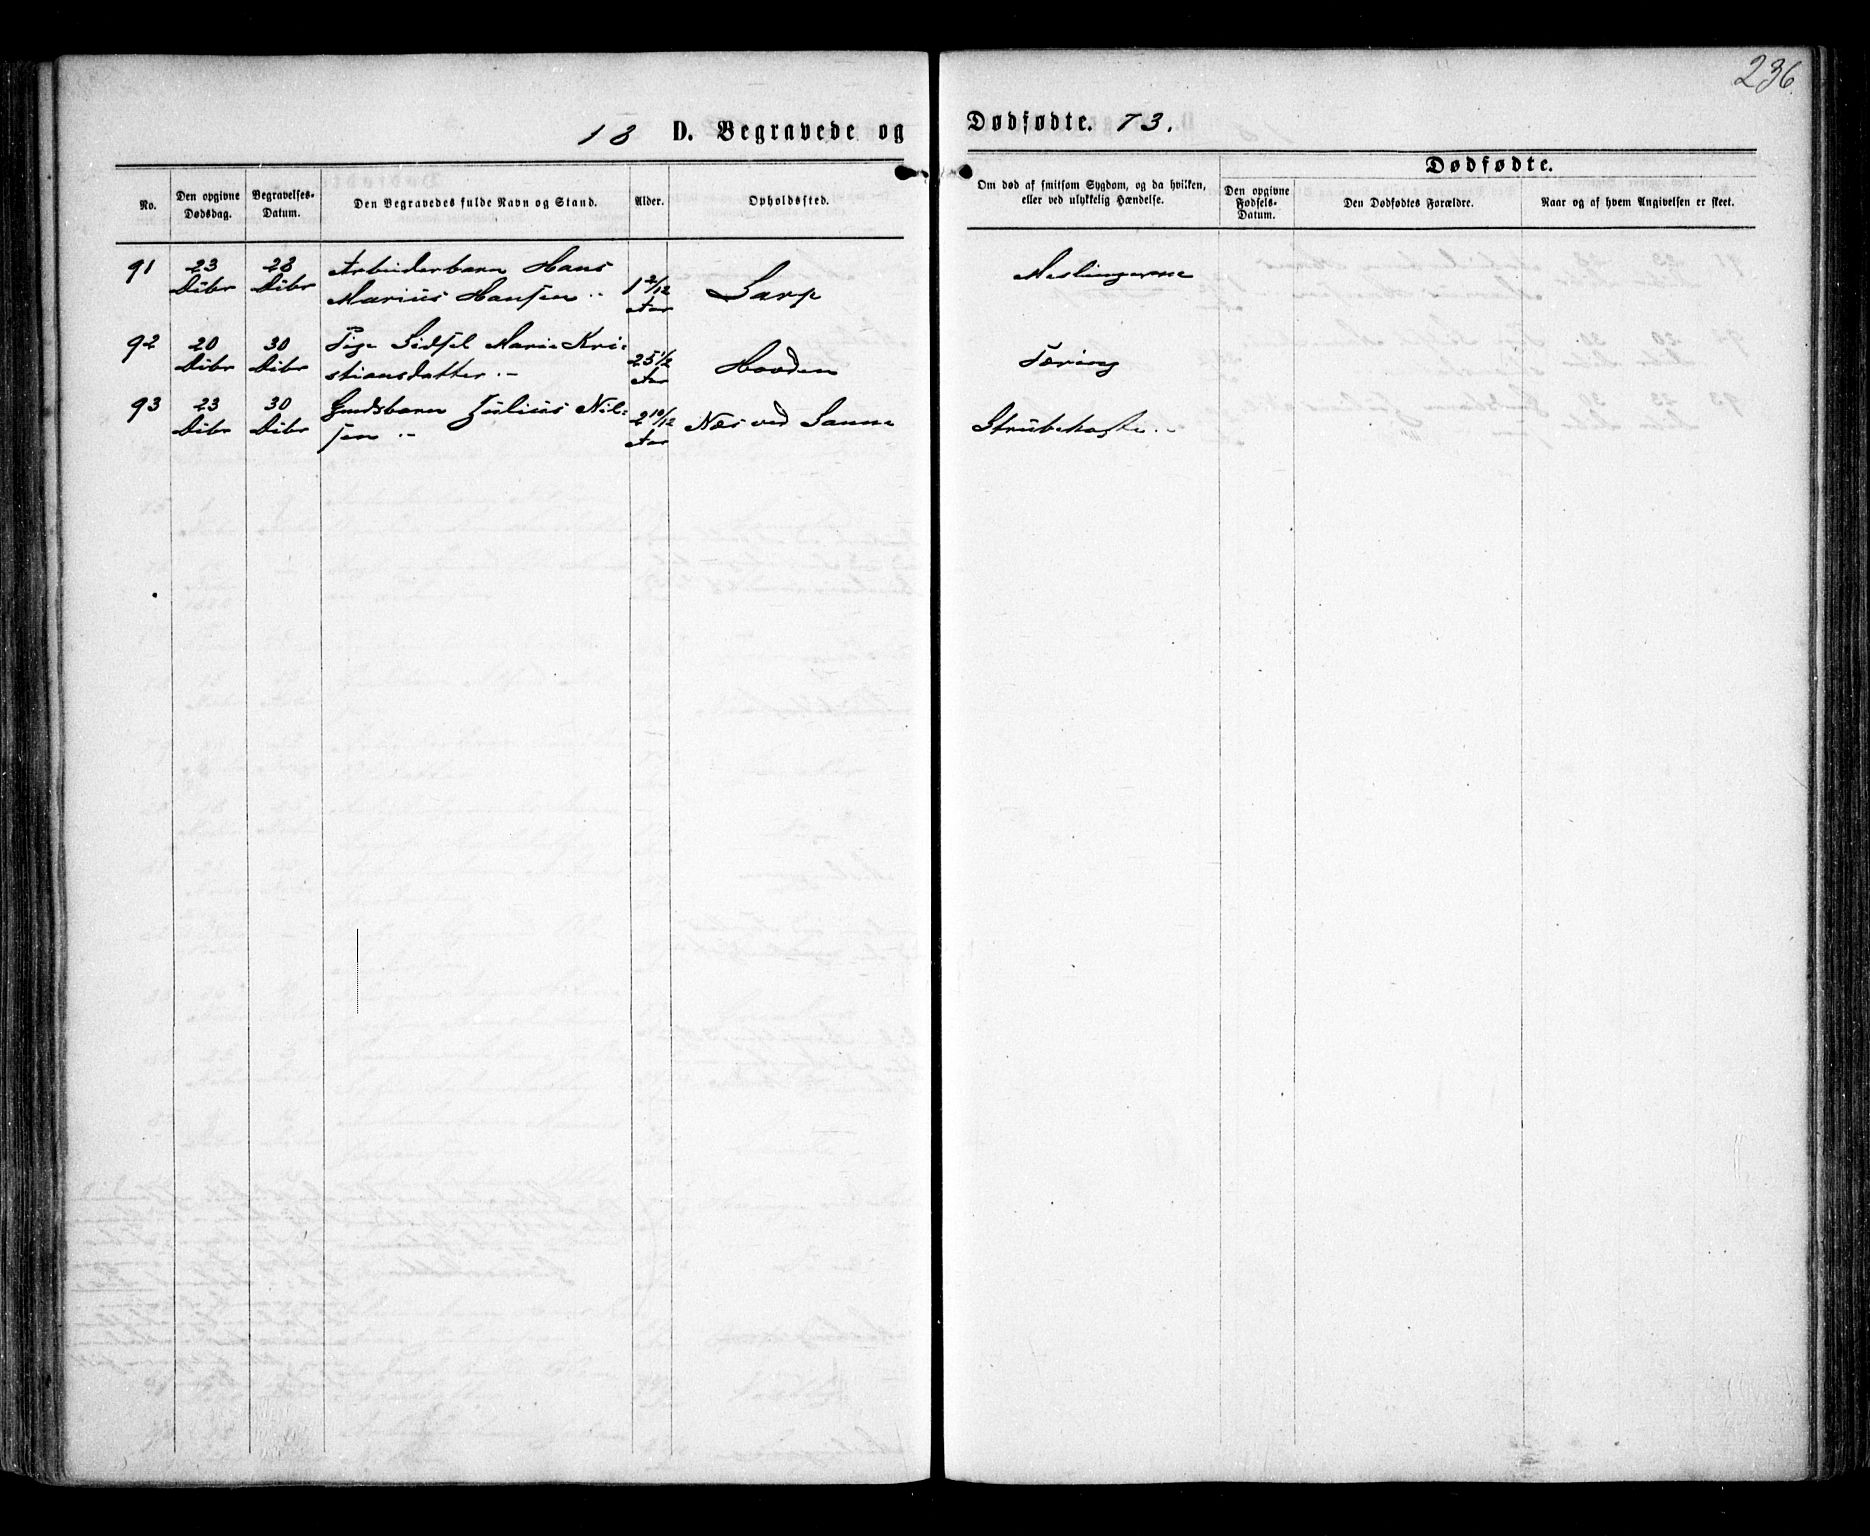 236.
18 D. Begravede og Dødfødte. 73.
No.
Den opgivne Dødsdag.
Begravelses-Datum.
Den Begravedes fulde Navn og Stand.
Alder.
Opholdssted.
Om død af smitsom Sygdom, og da hvilken, eller ved ulykkelig Hændelse.
Dødfødte.
Den opgivne Fødsels-Datum.
Den Dødfødtes Forældre.
Naar og af hvem Angivelsen er skeet.
91 23 28 Arbeiderbarn Hans
Dibr Dibr Marius Hansen .. 1 2/12 Aar Sarp Meslingerne
92 20 30 Pige Sidsel Marie Kri-
Dibr Dibr stiansdatter .- 25 1/2 Aar Hovden Tæring
93 23 30 Gmdsbarn Julius Nil-
Dibr Dibr sen .- 2 10/12 Aar Næs ved Sanne Strubehoste .-